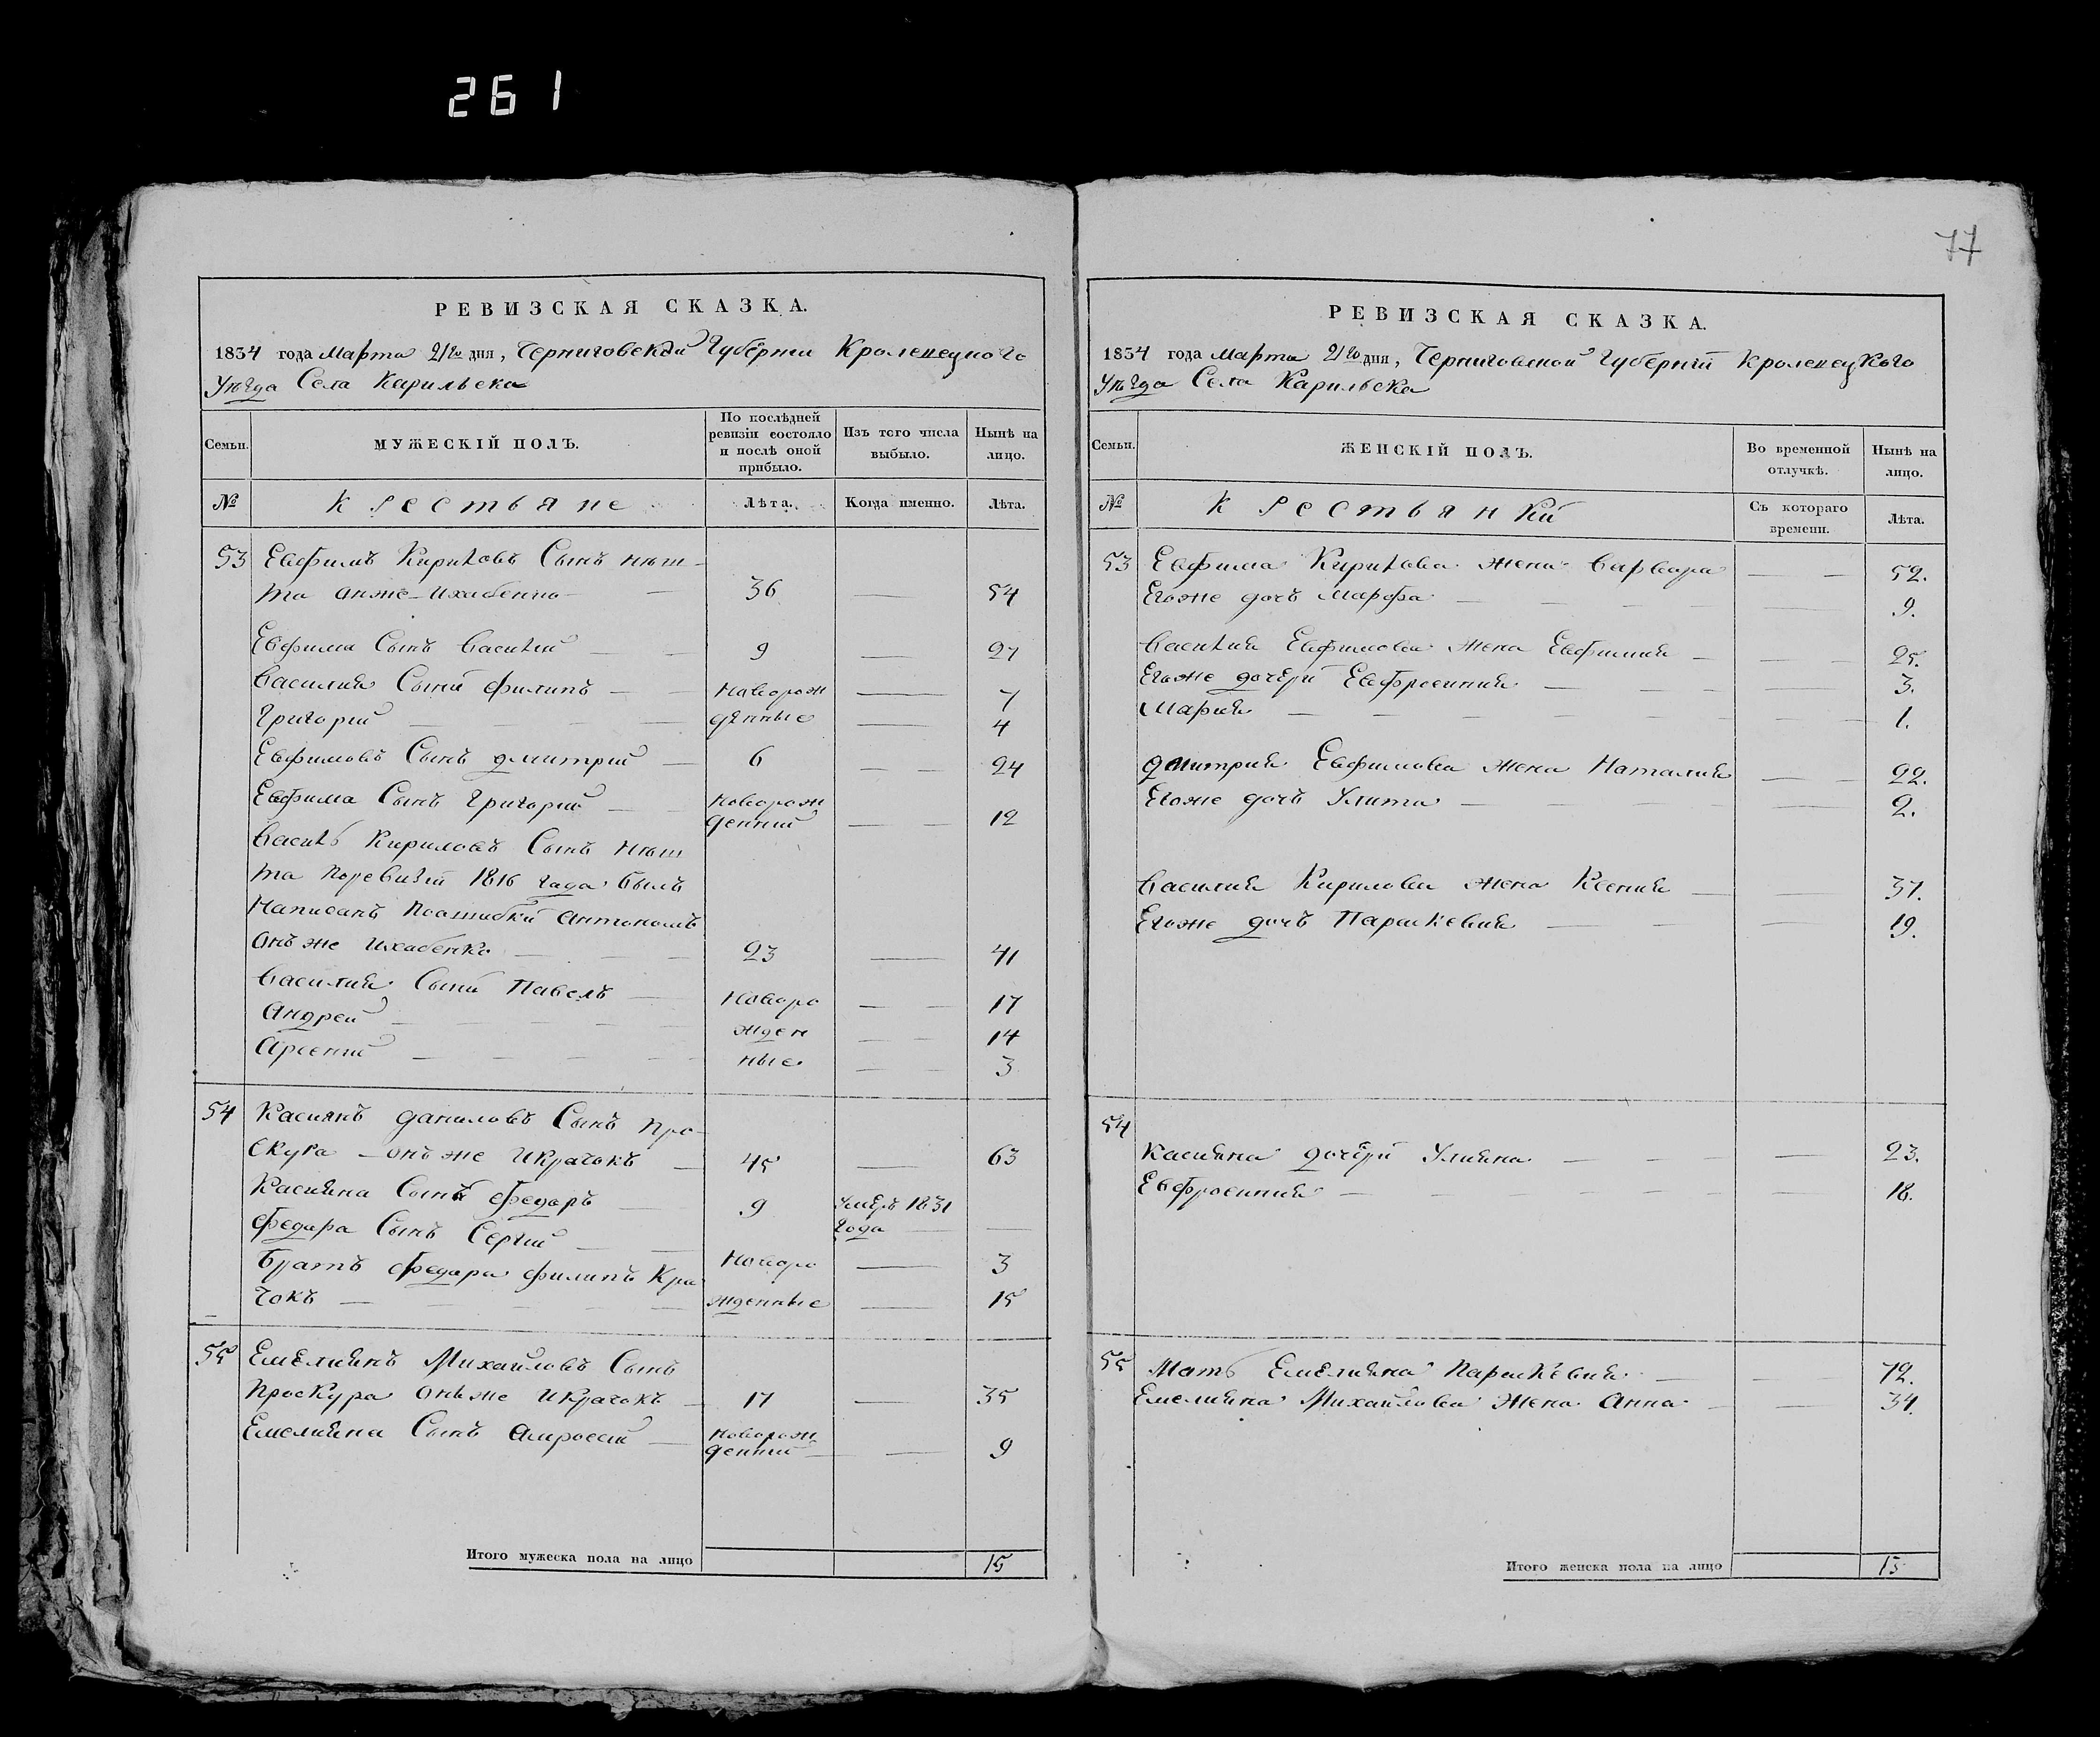 261
77
РЕВИЗСКАЯ СКАЗКА.
1834 года Марта 21го дня, Черниговской Губернии Кролевецкого
Уезда Села Карильска
Семьи.
МУЖЕСКІЙ ПОЛЪ.
По послѣдней ревизіи состояло и послѣ оной прибыло.
Изъ того числа выбыло.
Нынѣ на лицо.
№
Крестьяне
Лѣта.
Когда именно.
Лѣта.
53 Евфимъ Кириловъ Сынъ
36 54
Евфима Сынъ Василий 9 27
Василия Сыни Филипъ новорож 7
Григорий денные 4
Евфимовъ Сынъ Дмитрий 6 24
Евфима Сынъ Григорий новорож
денний 12
Василь Кириловъ Сынъ
та Поревизіи 1816 Года былъ
Написанъ Поошибки Антономъ
онъ же 23 41
Василия Сыни Павелъ Новоро 17
Андрей жден 14
Арсений ные 3
54 Касиянъ Даниловъ Сынъ Про-
скура онъ же Икрачокъ 45 63
Касияна Сынъ Федоръ 9 Умеръ 1831
Федора Сынъ Сергий года
Братъ Федора Филипъ Кра Новоро 3
чокъ жденные 15
55 Емелиянъ Михайловъ Сынъ
Проскура Онъ же Икрачокъ 17 35
Емелияна Сынъ Амросий новорож
денний 9
Итого мужеска пола на лицо 15
РЕВИЗСКАЯ СКАЗКА.
1834 года Марта 21го дня, Черниговской Губерніи Кролевецкого
Уезда Села Карильска
Семьи.
ЖЕНСКІЙ ПОЛЪ.
Во временной отлучкѣ.
Нынѣ на лицо.
№
Крестьянки
Съ котораго времени.
Лѣта.
53 Евфима Кирилова жена Варвара 52.
Егоже дочъ Марфа 9.
Василия Евфимова жена Евфимия 25.
Егоже дочери Евфросиния 3.
Мария 1.
Дмитрия Евфимова жена Наталия 22.
Егоже дочъ Улита 2.
Василия Кирилова жена Ксения 37.
Егоже дочъ Параскевия 19.
54
Касияна дочери Улияна 23.
Евфросиния 18.
55 Мать Емелияна Параскевия 72.
Емелияна Михайлова Жена Анна 34.
Итого женска пола на лицо 13